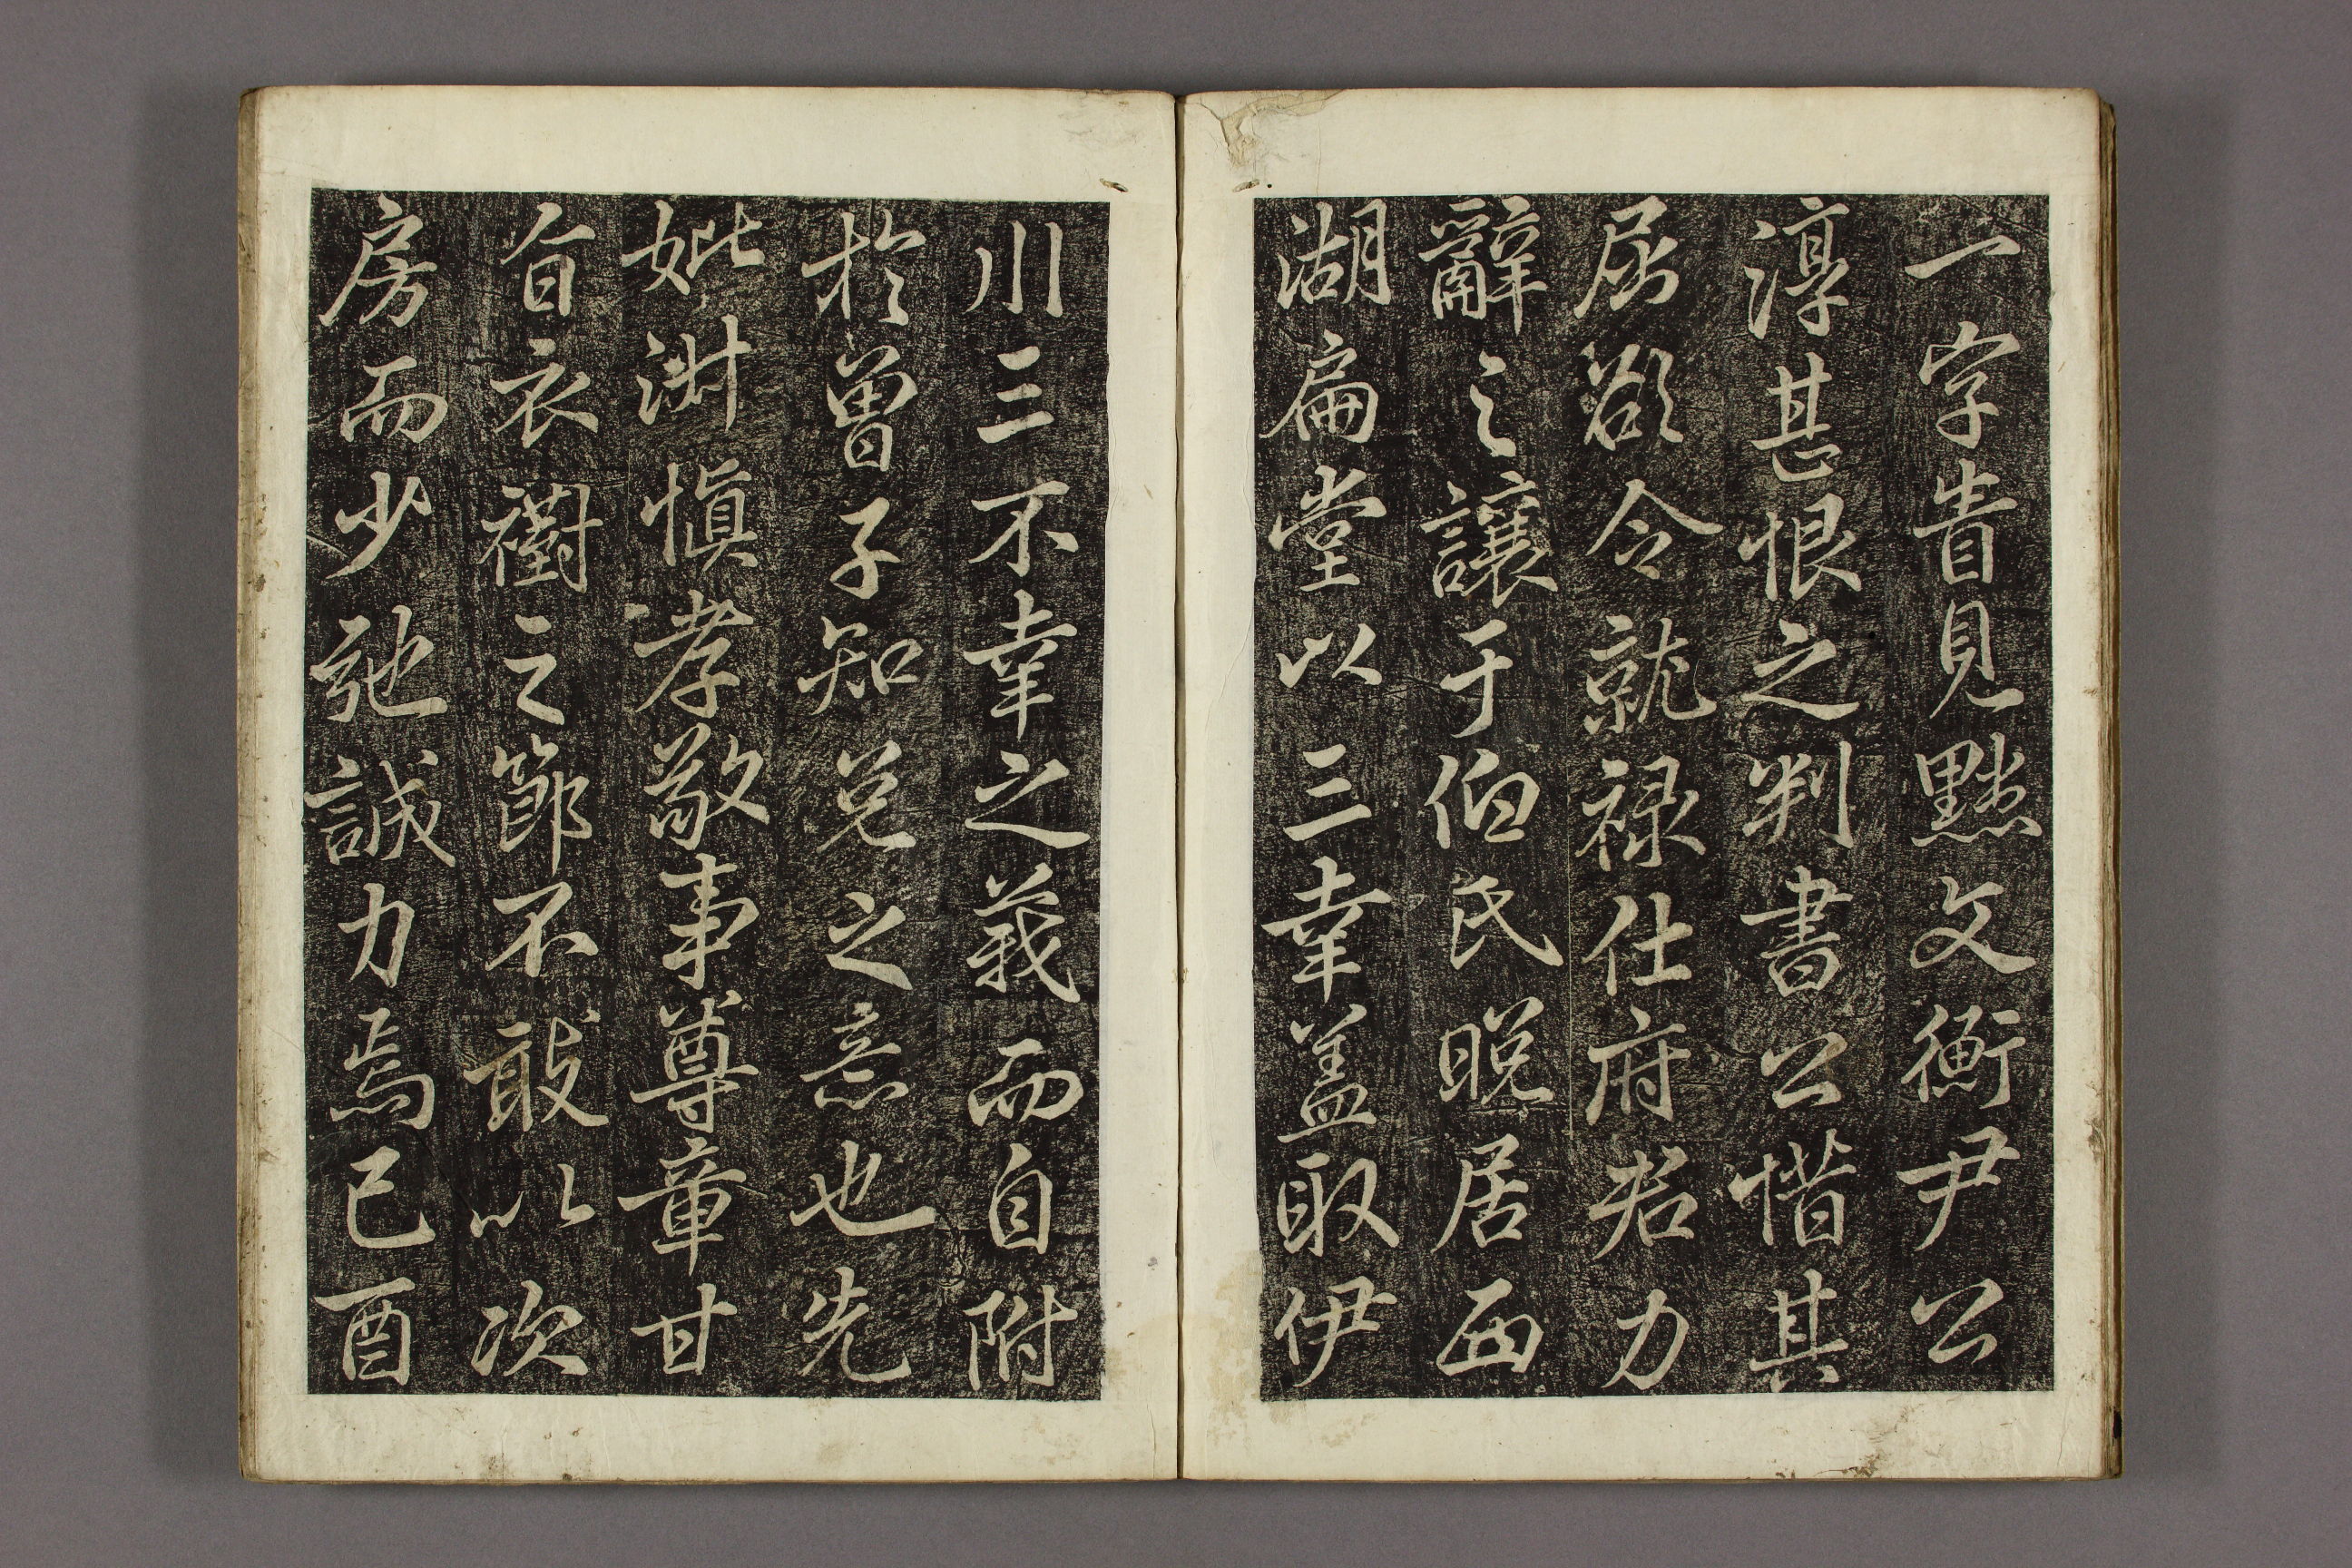 一字眚見黜文衡尹公
淳甚恨之判書公惜其
屈欲令就祿仕府君力
辭之讓于伯氏晩居西
湖扁堂以三幸盖取伊
川三不幸之義而自附
於曾子知免之意也先
妣淑愼孝敬事尊章甘
旨衣襡之節不敢以次
房而少弛誠力焉己酉